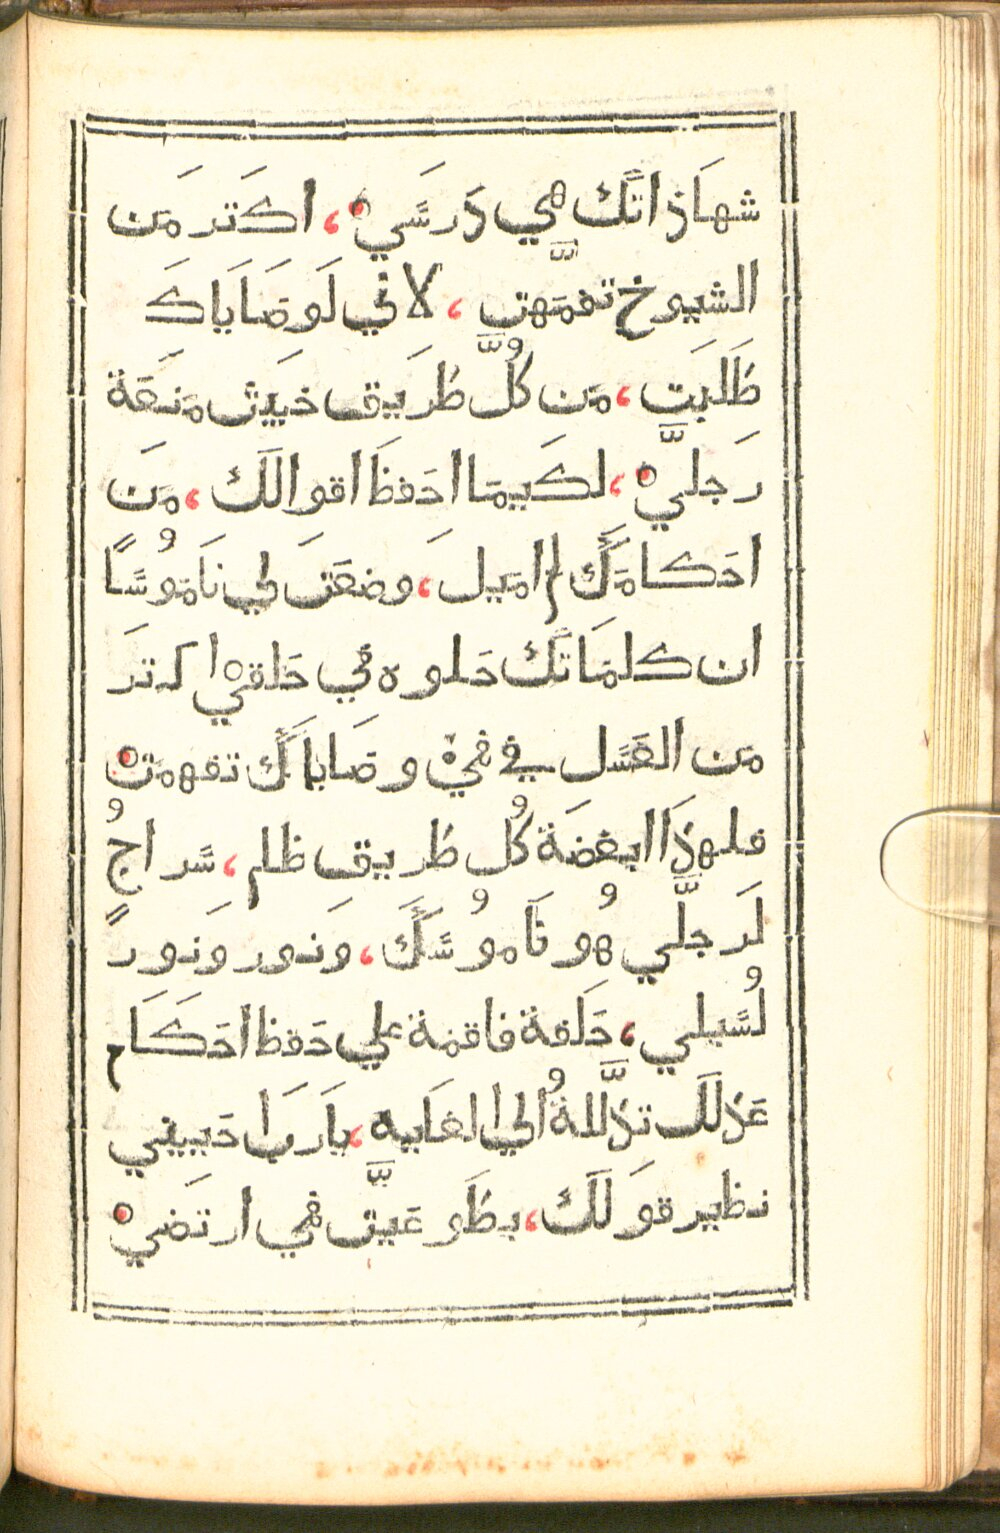 شهاذاتك هي درسي ، اكتر من
الشيوخ تفمهت ، لاني لوصاياك
طلبت ، من كل طريق خبيث منعة
رجلي ، لكيما احفظ اقوالك ، من
احكامك لم اميل ، وضعت لي ناموسًا
ان كلماتك حلوه في حلقي اكتر
من العسل في فمي وصاياك تفهمت
فلهذا ابغضة كل طريق ظلم ، سراجُ
لرجلي هو ناموسك ، ونور ونورً
لسبلي ، حلفة فاقمة علي حفظ احكام
عذلك تذللة الي الغايه ، يارب احييني
نظير قولك ، بطوعيت فمي ارتضي